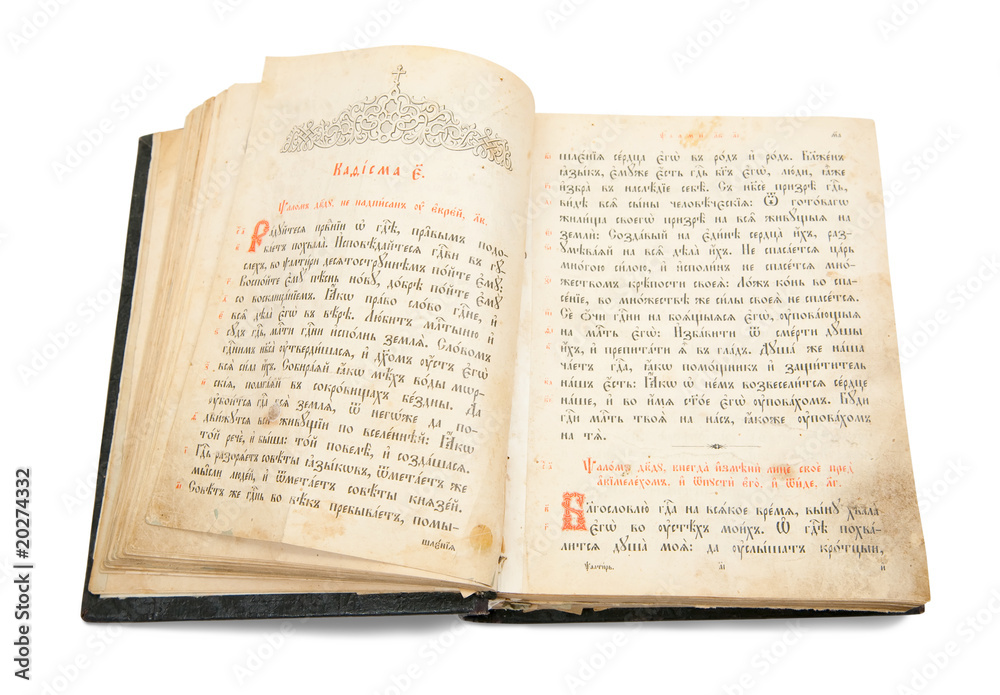 Каѳісма є҃.
Ѱаломъ дв҃ду, не надписанъ ѹ҆ є҆врє́й, л҃в.
Ра́дуйтеся првⷣнїи ѡ҆ гдⷭ҇ѣ, пра̑вымъ подо-
ба́етъ похвала̀. И҆сповѣ́дайтеся гдⷭ҇ви въ гꙋ́-
слехъ, во ѱалти́ри десятострꙋ́ннѣмъ по́йте є҆мꙋ̀.
Воспо́йте є҆мꙋ̀ пѣ́снь но́вꙋ, до́брѣ по́йте є҆мꙋ̀
со восклица́нїемъ. Ꙗ҆́кѡ пра́во сло́во гдⷭ҇не, и҆
всѧ̑ дѣла̀ є҆гѡ̀ въ вѣ́рѣ. Лю́битъ млⷭ҇тыню и҆
сꙋ́дъ гдⷭ҇ь, млⷭ҇ти гдⷭ҇ни и҆спо́лнь землѧ̀. Сло́вомъ
гдⷭ҇нимъ нб҃са̀ ѹ҆тверди́шася, и҆ дх҃омъ ѹ҆́стъ є҆гѡ̀
всѧ̀ си́ла и҆́хъ. Собира́ѧй ꙗ҆́кѡ мѣ́хъ во́ды мѡр-
скі́ѧ, полага́ѧй въ сокро́вищахъ бє́здны. Да
ѹ҆бои́тся гдⷭ҇а всѧ̀ землѧ̀, ѿ негѡ́же да по-
дви́жꙋтся всѝ живꙋ́щїи по вселе́ннѣй: Ꙗ҆́кѡ
то́й речѐ, и҆ бы́ша: то́й повелѣ̀, и҆ созда́шася.
Гдⷭ҇ь разоря́етъ совѣ́ты ꙗ҆зы́кѡвъ, ѿмета́етъ же
мы́сли люде́й, и҆ ѿмета́етъ совѣ́ты кнѧзе́й.
Совѣ́тъ же гдⷭ҇нь во вѣ́къ пребыва́етъ, помы-
шле́нїѧ
шле́нїѧ се́рдца є҆гѡ̀ въ ро́дъ и҆ ро́дъ. Бл҃же́нъ
ꙗ҆зы́къ, є҆мꙋ́же є҆́сть гдⷭ҇ь бг҃ъ є҆гѡ̀, лю́ди, ꙗ҆̀же
и҆збра̀ въ наслѣ́дїе себѣ̀. Съ нб҃сѐ призрѣ̀ гдⷭ҇ь,
ви́дѣ всѧ̑ сы́ны человѣ́ческїѧ: Ѿ гото́вагѡ
жили́ща своегѡ̀ призрѣ̀ на всѧ̑ живꙋ́щыѧ на
землѝ: Созда́вый на є҆ди́нѣ сердца̀ и҆́хъ, раз-
ꙋмѣва́ѧй на всѧ̑ дѣла̀ и҆́хъ. Не спаса́ется ца́рь
мно́гою си́лою, и҆ и҆споли́нъ не спасе́тся мно́-
жествомъ крѣ́пости своеѧ̀: Ло́жъ ко́нь во спа-
се́нїе, во мно́жествѣ же си́лы своеѧ̀ не спасе́тся.
Сѐ ѻ҆́чи гдⷭ҇ни на боя́щыяся є҆гѡ̀, ѹ҆пова́ющыѧ
на млⷭ҇ть є҆гѡ̀: И҆зба́вити ѿ сме́рти дꙋ́шы
и҆́хъ, и҆ препита́ти ѧ҆̀ въ гла́дъ. Дꙋша́ же на́ша
ча́етъ гдⷭ҇а, ꙗ҆́кѡ помо́щникъ и҆ защи́титель
на́шъ є҆́сть: Ꙗ҆́кѡ ѡ҆ не́мъ возвесели́тся се́рдце
на́ше, и҆ во и҆́мѧ ст҃о́е є҆гѡ̀ ѹ҆пова́хомъ. Бꙋ́ди
гдⷭ҇и млⷭ҇ть твоѧ̀ на на́съ, ꙗ҆́коже ѹ҆пова́хомъ
на тѧ̀.
Ѱало́мъ дв҃дꙋ, внегда̀ и҆змѣнѝ лицѐ своѐ пред̾
а҆вїмеле́хомъ, и҆ ѿпꙋстѝ є҆го̀, и҆ ѿи́де, л҃г.
Благословлю̀ гдⷭ҇а на всѧ́кое вре́мѧ, вы́нꙋ хвала̀
є҆гѡ̀ во ѹ҆стѣ́хъ мои́хъ. Ѡ҆ гдⷭ҇ѣ похва́-
лится дꙋша̀ моѧ̀: да ѹ҆слы́шатъ кро́тцыи,
Ѱалти́рь.
Adobe Stock | #20274332